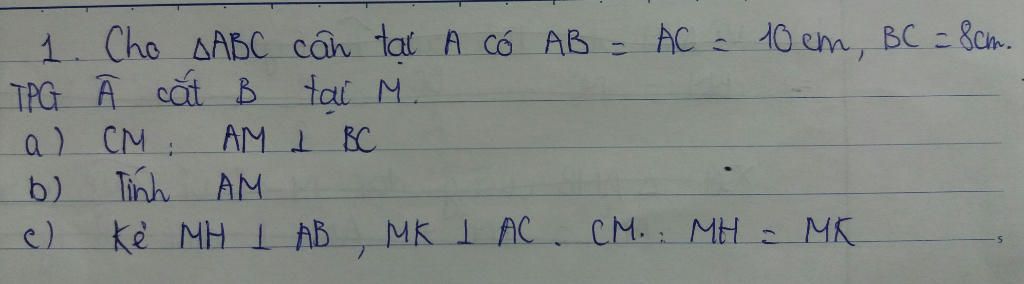 1. Cho ΔABC cân tại A có AB = AC = 10 cm, BC = 8cm.
TPG Â cắt B tại M.
a) CM: AM ⊥ BC
b) Tính AM
c) Kẻ MH ⊥ AB, MK ⊥ AC. CM: MH = MK